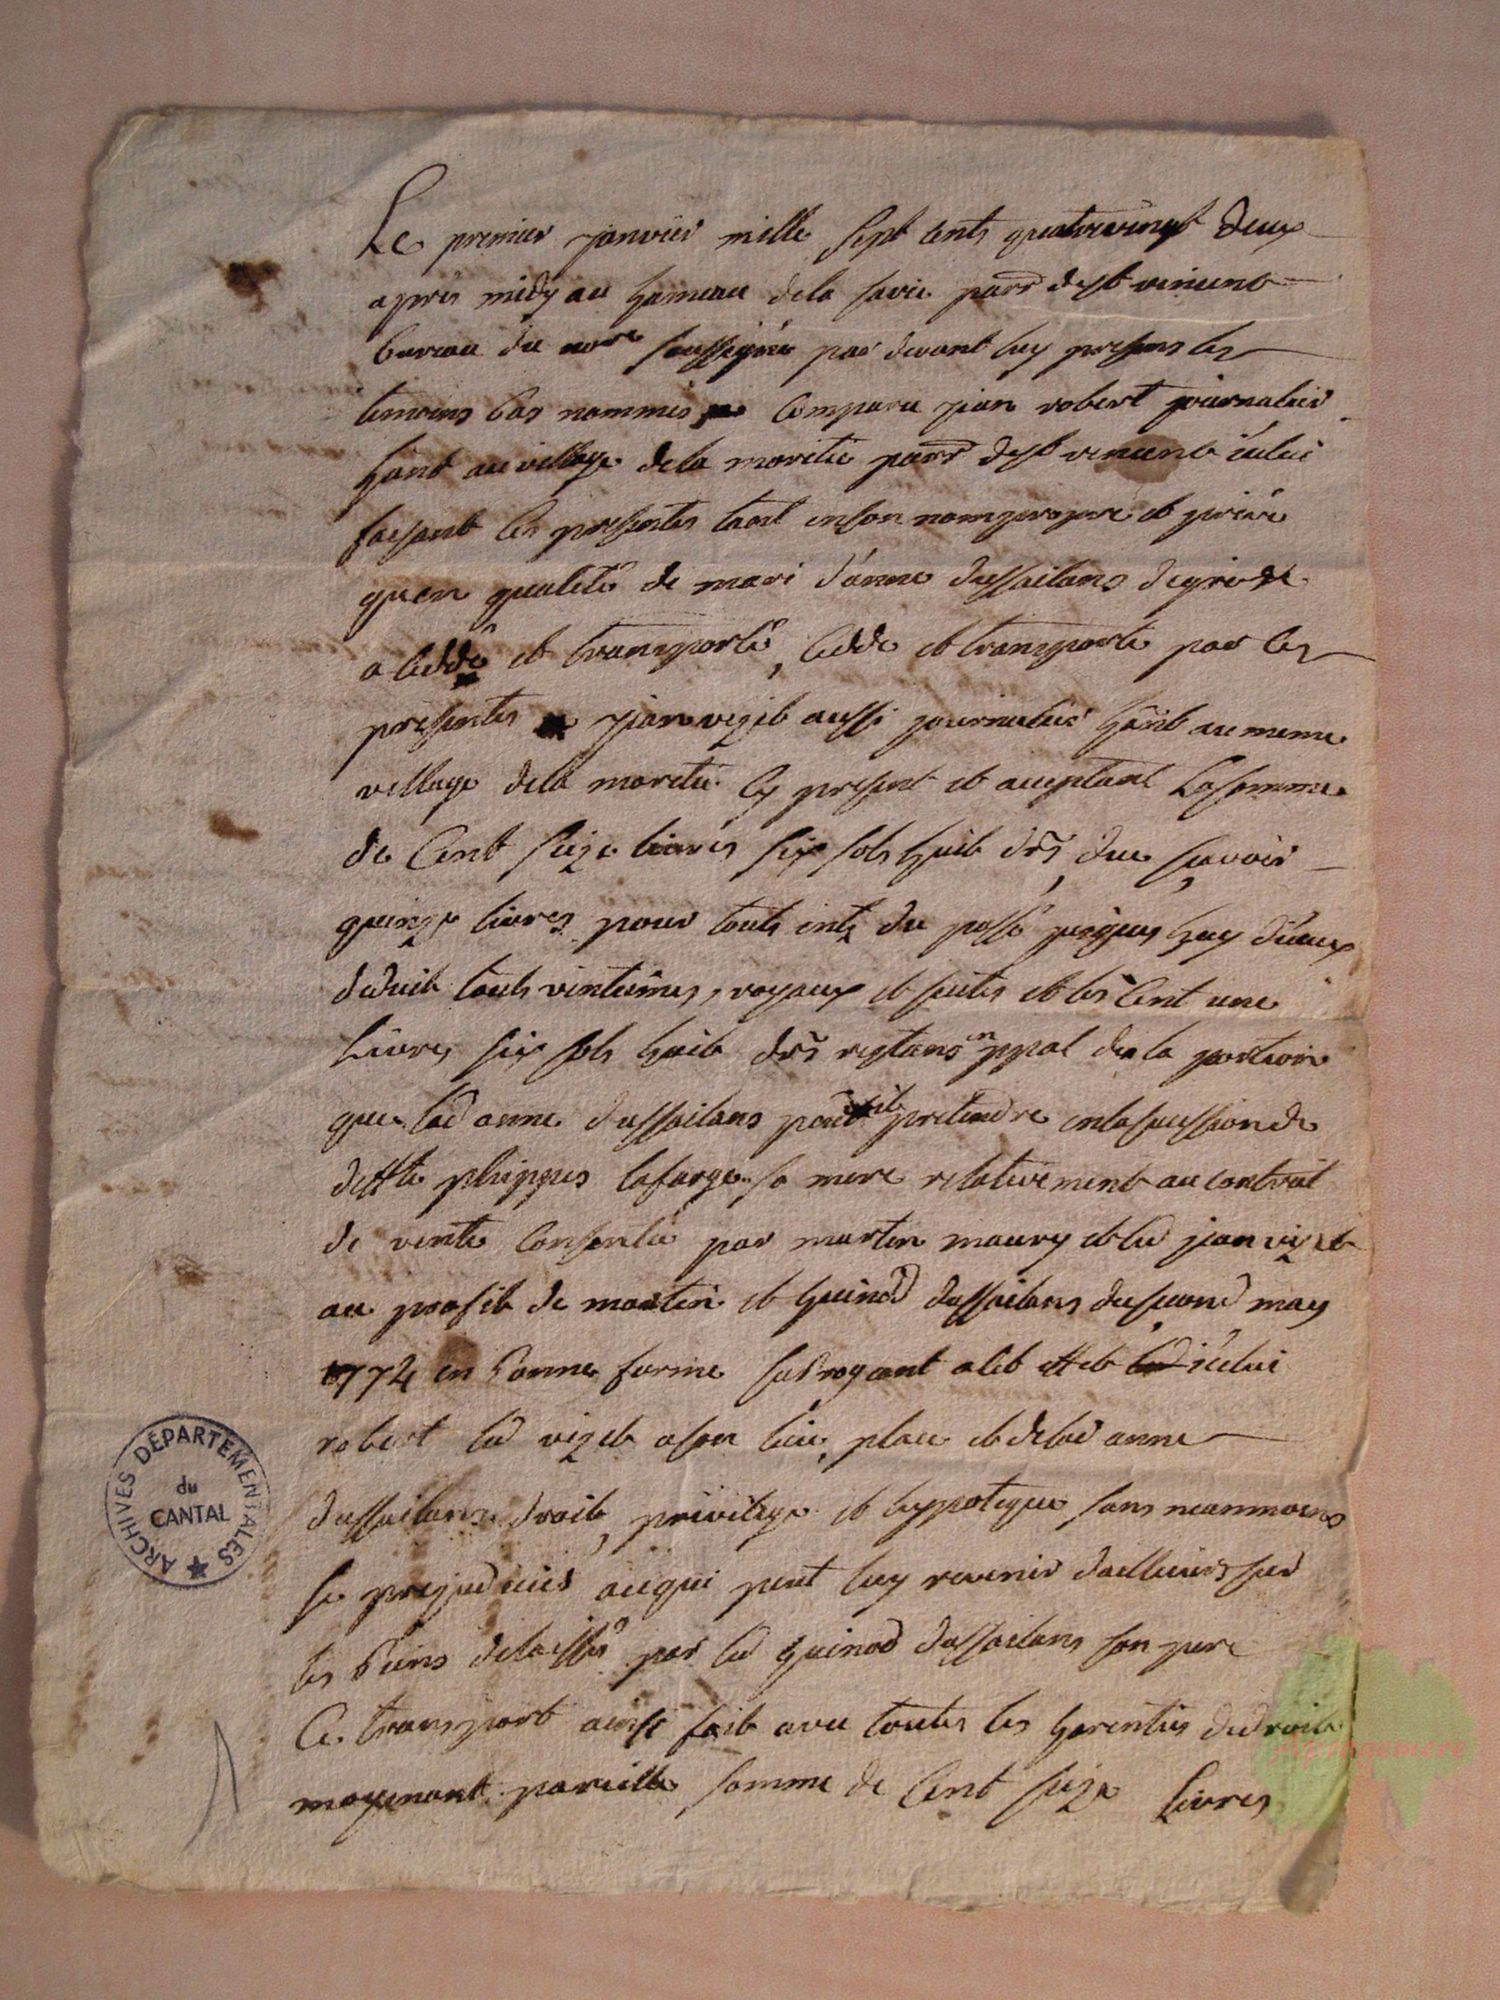 Le premier janvier mille sept cents quatrevingt deux
apres midy au hameau dela favie parr dest vincent
bureau du nore soussigné par devant luy presens les
temoins bas nommés comparu jean robert journalier
hant au village dela moretie parr dest vincent icelui
faisant les presentes tant enson nom propre et privé
quen qualité de mari d'anne dussailans degré
a ceddé et transporté, cedde et transporte par les
presentes jean vezit aussi journalier hant au meme
village dela moretie cy present et aceptant La somme
de Cent seize livres six sols huit drs, due scavoir
quinze livres pour touts ints du passé jusques huy diceux
deduit touts vintiemes, royaux et suites et les Cent une
Livres six sols huit drs restans en ppal de la portion
que lad anne dussailans pretendre enla sucssion de
deffte phippes lafarge sa mere relativement au contrat
de vente Consentie par martin maury et led jean vizet
au profit de martin et guinod dussailans du second may
1774 en bonne forme subrogant a cet effet icelui
robert led vizet a son lieu, place et de lad anne
dussailans droit, privilege et hypoteque sans neanmoins
se prejudicier acequi peut luy revenir dailleurs sur
les biens delaissés par led guinod dussailans son pere
Ce transport ainsi fait avec toutes les garenties de droit
moyenant pareille somme de Cent seize Livres
ARCHIVES DÉPARTEMENTALES
du
CANTAL
Aprogemere